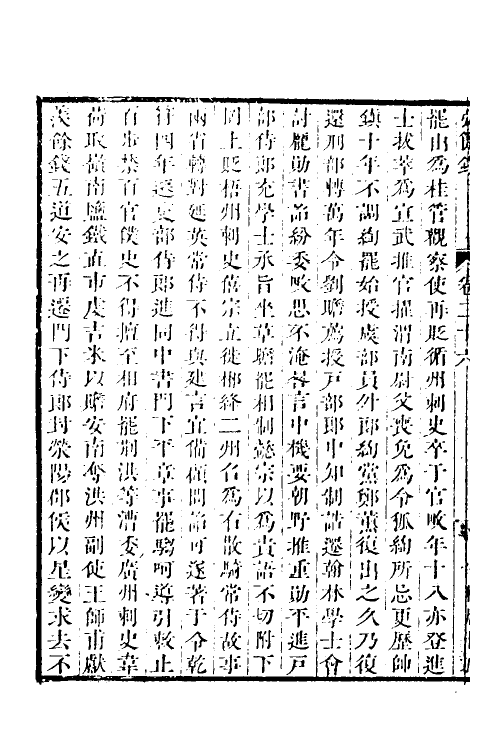 罷由為桂管觀察使再貶循州刺史卒于官畋年十八亦登進
士拔萃為宣武推官擢渭南尉父喪免為令狐綯所忌更歷師
鎮十年不調綯罷始授虞部員外郎綯黨鄭薰復出之久乃復
還刑部轉萬年令劉瞻薦授戸部郎中知制誥遷翰林學士會
討龐勛書詔紛委畋思不淹晷言中機要朝野推重勛平進戸
部侍郎充學士承旨坐草瞻罷相制懿宗以為責語不切附下
罔上貶梧州刺史僖宗立徙郴絳二州名為右散騎常侍故事
兩省轉對延英常侍不得與建言宜備顧問詔可遂著于令乾
符四年遷吏部侍郎進同中書門下平章事罷騶呵導引敕止
百步禁百官僕史不得擅至相府罷荆洪等漕委廣州刺史韋
荷取嶺南鹽鐵直市虔吉米以贍安南奪洪州副使王師甫獻
羨餘錢五道安之再遷門下侍郎封滎陽郡侯以星變求去不
卷二十六